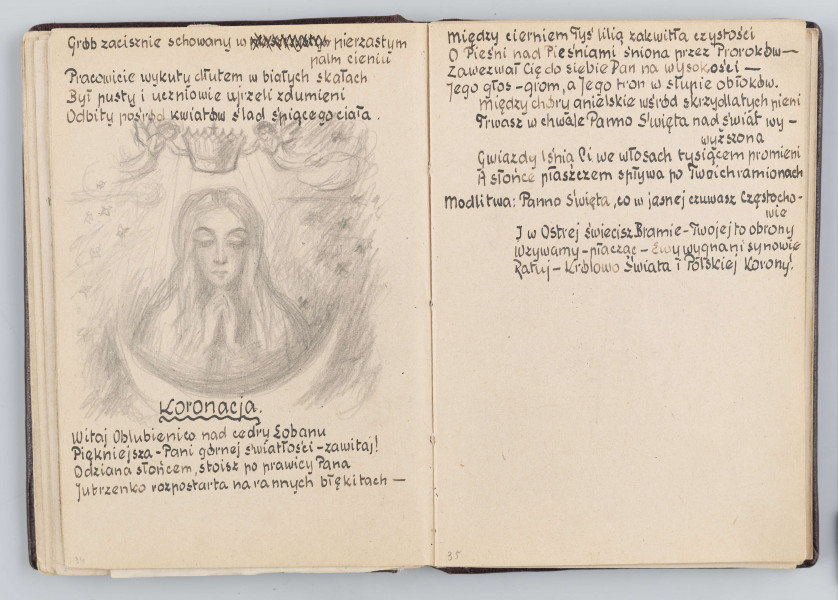 Grób zacisznie schowany w pierzastym
palm cieniu
Pracowicie wykuty dłutem w białych skałach
Był pusty i uczniowie ujrzeli zdumieni
Odbity pośród kwiatów ślad śpiącego ciała.
Koronacja.
Witaj Oblubienico nad cedry Łobanu
Piękniejsza – Pani górnej światłości – zawitaj!
Odziana słońcem, stoisz po prawicy Pana
Jutrzenko rozpostarta na rannych błękitach —
34
Między cierniem Tyś lilią zakwitła czystości
O Pieśni nad Pieśniami śniona przez Proroków—
Zawezwał Cię do siebie Pan na wysokości —
Jego głos – grom, a Jego tron w słupie obłoków.
Między chóry anielskie wśród skrzydlatych pieni
Trwasz w chwale Panno Święta nad świat wy-
wyższona
Gwiazdy lśnią Ci we włosach tysiącem promieni
A słońce płaszczem spływa po Twoich ramionach
Modlitwa: Panno Święta, co w jasnej czuwasz Częstocho-
wie
I w Ostrej świecisz Bramie – Twojej to obrony
Wzywamy – płacząc – Ewy wygnani synowie
Ratuj – Królowo Świata i Polskiej Korony!
35